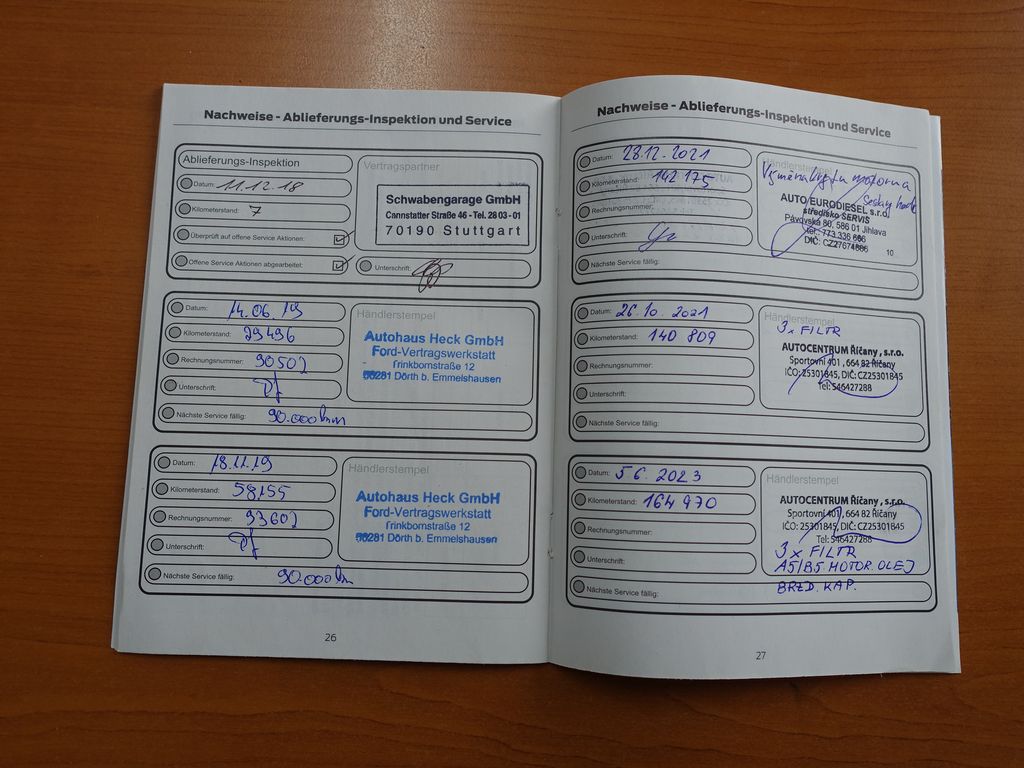 Nachweise - Ablieferungs-Inspektion und Service
Ablieferungs-Inspektion
Datum: 11.12.18
Kilometerstand: 7
Überprüft auf offene Service Aktionen:
Offene Service Aktionen abgearbeitet:
Vertragspartner
Schwabengarage GmbH
Cannstatter Straße 46 - Tel. 28 03 - 01
70190 Stuttgart
Unterschrift:
Datum: 14.06.19
Kilometerstand: 29496
Rechnungsnummer: 90502
Unterschrift:
Nächste Service fällig: 90.000km
Händlerstempel
Autohaus Heck GmbH
Ford-Vertragswerkstatt
Trinkbornstraße 12
56281 Dörth b. Emmelshausen
Datum: 18.11.19
Kilometerstand: 58155
Rechnungsnummer: 93602
Unterschrift:
Nächste Service fällig: 90.000km
Händlerstempel
Autohaus Heck GmbH
Ford-Vertragswerkstatt
Trinkbornstraße 12
56281 Dörth b. Emmelshausen
26
Nachweise - Ablieferungs-Inspektion und Service
Datum: 28.12.2021
Kilometerstand: 142 175
Rechnungsnummer:
Unterschrift:
Nächste Service fällig:
Händlerstempel
Výměna motoru
AUTO EURODIESEL s.r.o.
středisko SERVIS
Pávovská 80, 586 01 Jihlava
tel.: 773 336 886
DIČ: CZ27674886
10
Datum: 26.10.2021
Kilometerstand: 140 809
Rechnungsnummer:
Unterschrift:
Nächste Service fällig:
Händlerstempel
3x FILTR
AUTOCENTRUM Říčany, s.r.o.
Sportovní 401, 664 82 Říčany
IČO: 25301845, DIČ: CZ25301845
Tel: 546427288
Datum: 5 6. 2023
Kilometerstand: 164 970
Rechnungsnummer:
Unterschrift:
Nächste Service fällig:
Händlerstempel
AUTOCENTRUM Říčany, s.r.o.
Sportovní 401, 664 82 Říčany
IČO: 25301845, DIČ: CZ25301845
Tel: 546427288
3 x FILTR
A5/B5 MOTOR. OLEJ
BRZD. KAP.
27